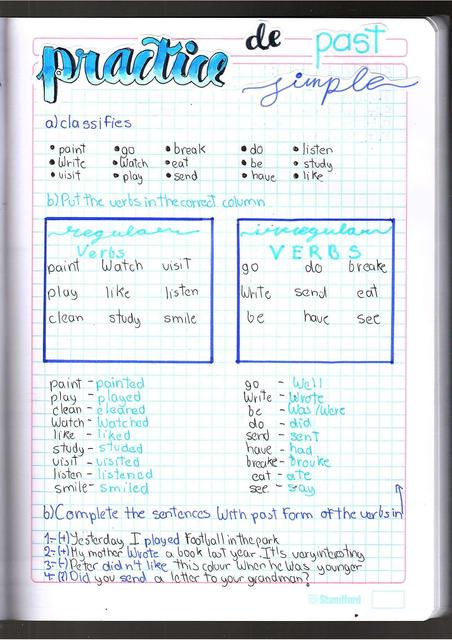 practice de past
simple
a) classifies
• paint • go • break • do • listen
• Write • Watch • eat • be • study
• visit • play • send • have • like
b) Put the verbs in the correct column
regular
Verbs
paint Watch visit
play like listen
clean study smile
irregular
VERBS
go do breake
Write send eat
be have see
paint - painted
play - played
clean - cleaned
Watch - Watched
like - liked
study - studed
visit - visited
listen - listened
smile - smiled
go - Well
Write - Wrote
be - Was/Were
do - did
send - sent
have - had
breake - brouke
eat - ate
see - say
b) Complete the sentences With past Form of the verbs in
1=(+) Yesterday I played Football in the park
2=(+) My mother Wrote a book last year. It Is very interesting
3=(-) Peter didn't like this colour When he Was younger
4=(?) Did you send a letter to your grandman?
Standford